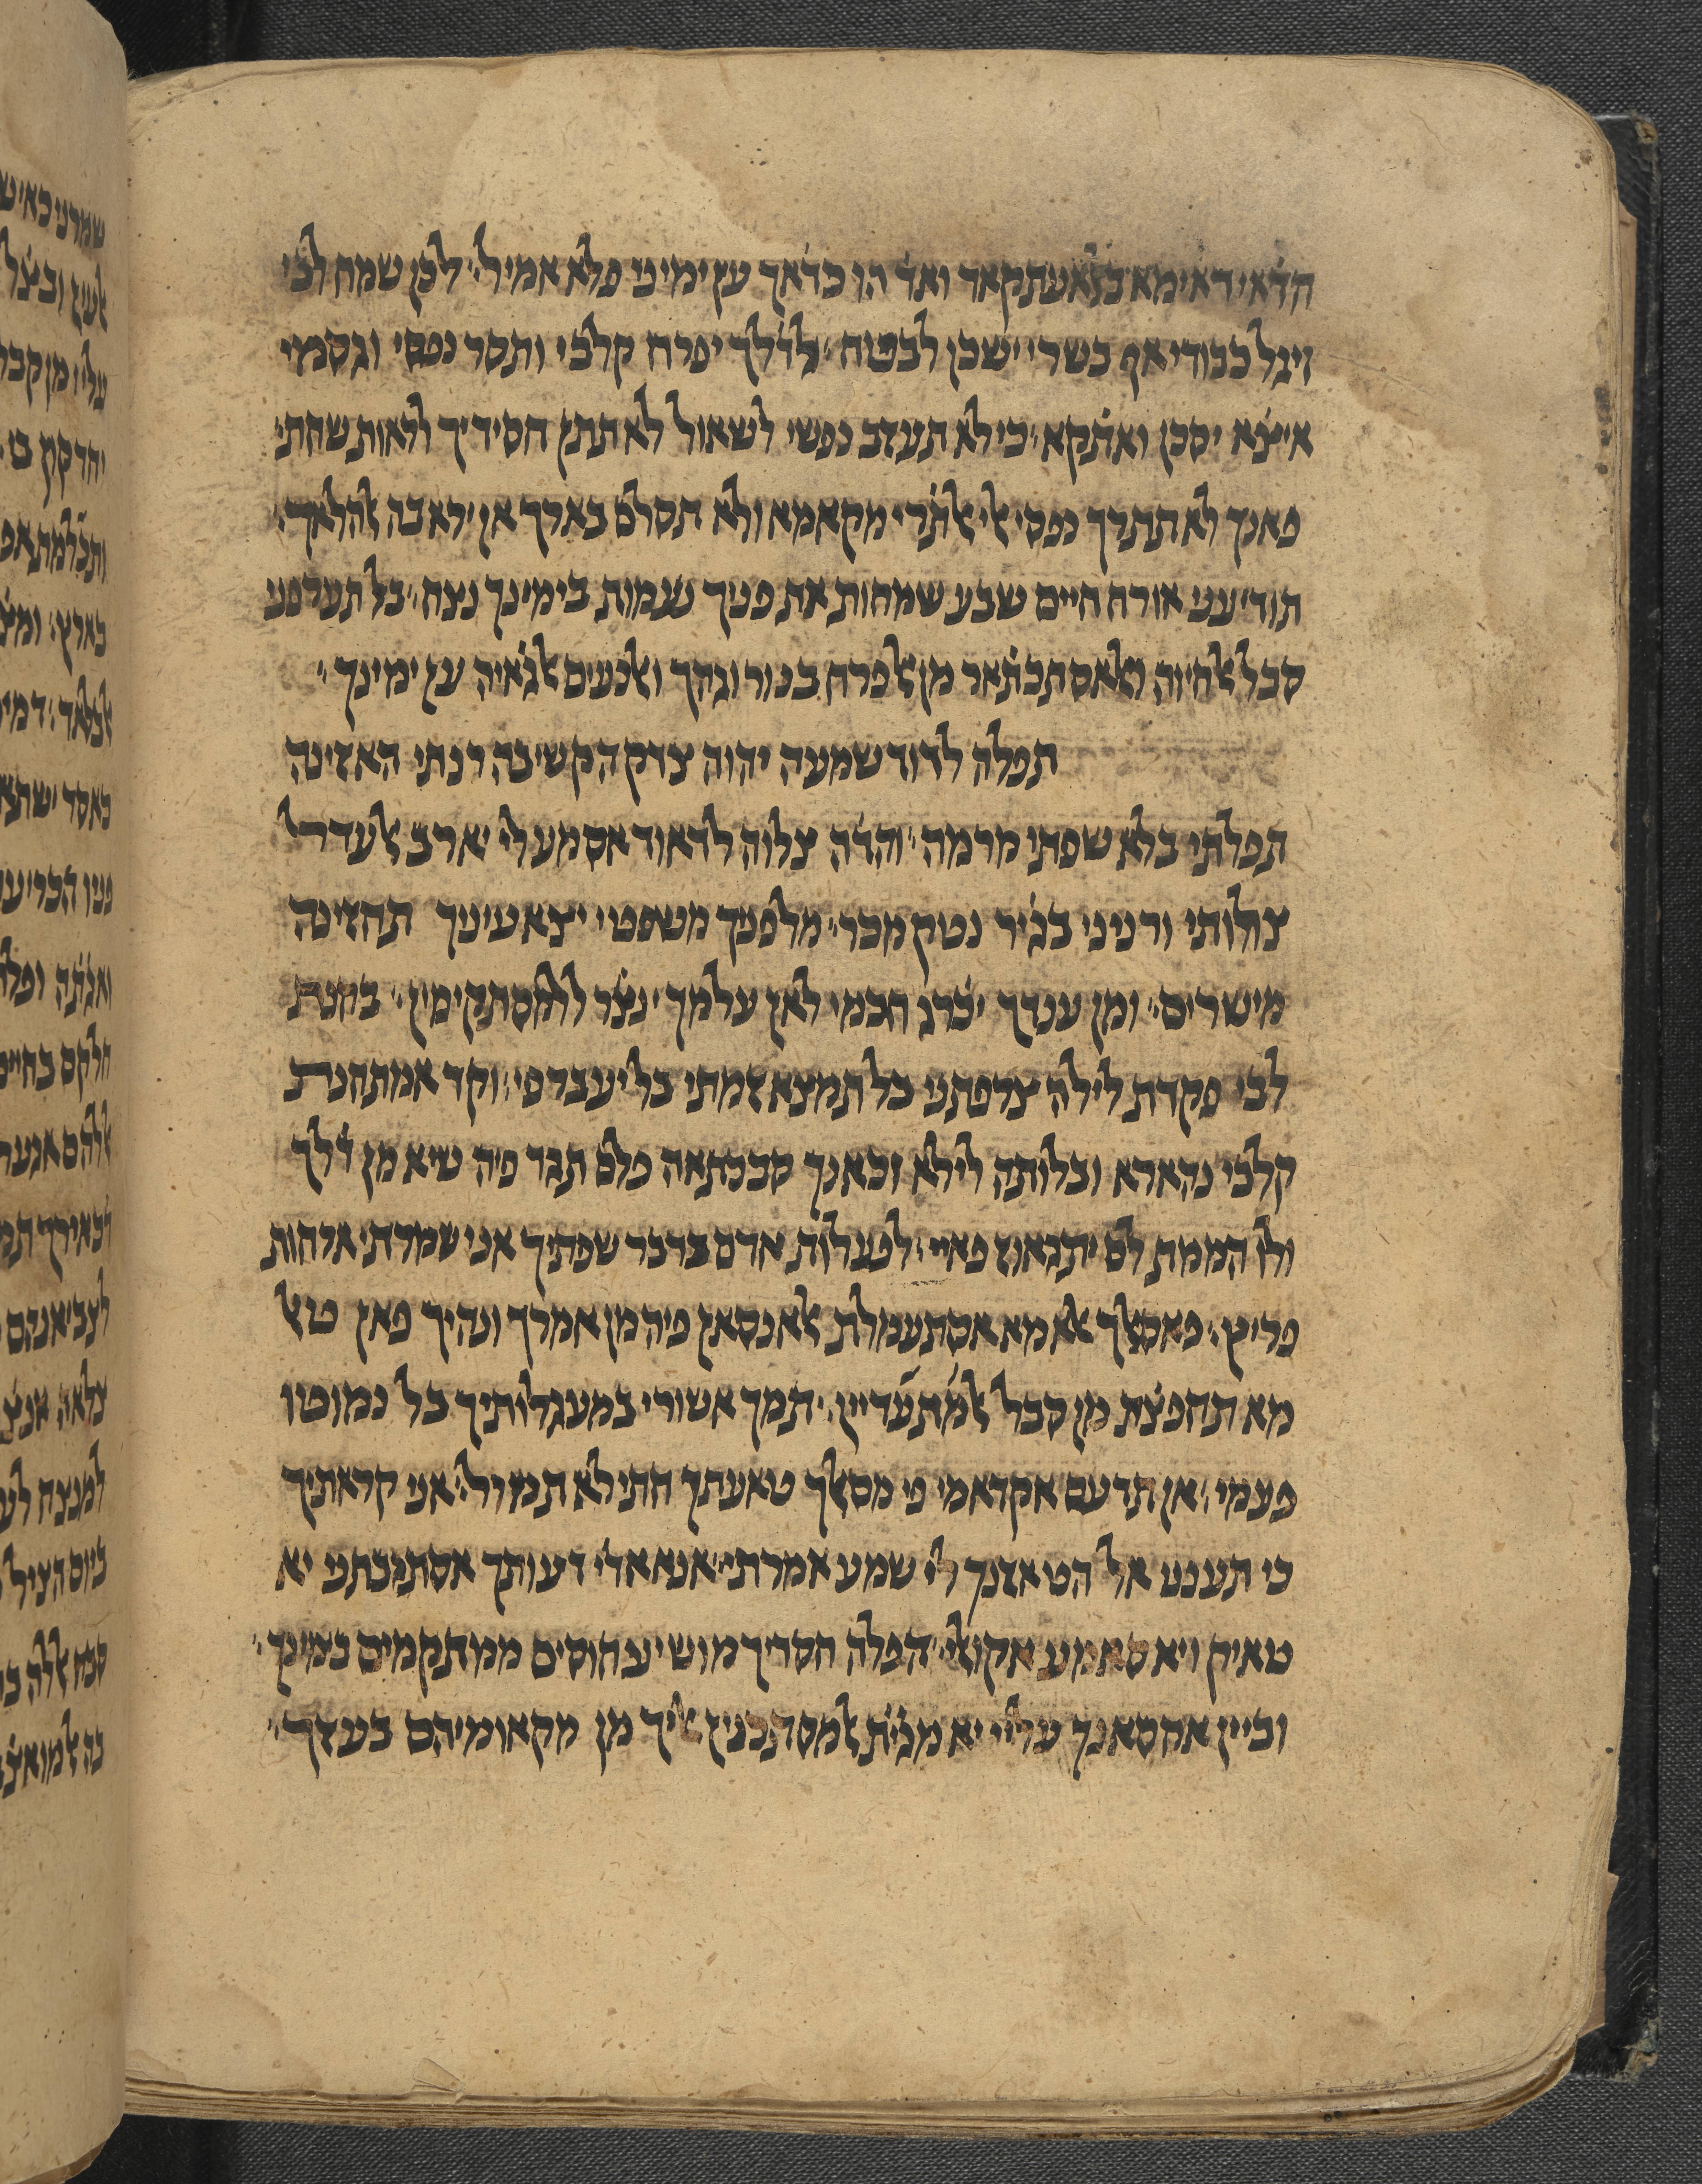 הדאי דאימא באלאעתקאד ואד הו כדאך ען ימיני פלא אמיל לכן שמח לבי
ויגל כבודי אף בשרי ישכן לבטח לדלך יפרח קלבי ותסר נפסי וגסמי
איצׄא יסכן ואתׄקא כי לא תעזב נפשי לשאול לא תתן חסידיך לראות שחת
פאנך לא תתרך נפסי אלי אלתׄרי מקאמא ולא תסלם באריך אן ירא בה אלהלאך
תודיעני אורח חיים שבע שמחות את פניך נעמות בימינך נצח בל תערפני
סבל אלחיוה ואלאסתכתׄאר מן אלפרח בנור וגהך ואלנעים אלגׄאיה ען ימינך
תפלה לדוד שמעה יהוה צדק הקשיבה רנתי האזינה
תפלתי בלא שפתי מרמה והדׄה צלוה לדאוד אסמע לי יארב אלעדל
צלותי ורניני בגׄיר נטק מכר מלפניך משפטי יצא עיניך תחזינה
מישרים ומן ענדך יכׄרגׄ חכמי לאן עלמך ינצׄר ללמסתקימין בחנת
לבי פקדת לילה צרפתני בל תמצא זמתי בל יעבר פי וקד אמתחנת
קלבי נהארא ובלותה לילא וכאנך סבכתאה פלם תגד פיה שיא מן דׄלך
ולו הממת לם יתגאוז פאיי לפעלות אדם בדבר שפתיך אני שמרתי ארחות
פריץ פאסלך אלא מא אסתעמלת אלאנסאן פיה מן אמרך ונהיך פאן טאל
מא תחפצׄת מן סבל אלמתעדיין תמך אשורי במעגלותיך בל נמוטו
פעמי אן תדעם אקדאמי פי מסאלך טאעתך חתי לא תמיל אני קראתיך
כי תענני אל הט אזנך לי שמע אמרתי אנא אדי דעותך אסתגבתני יא
טאיק ויא סאמע אקולי הפלה חסדיך מושיע חוסים ממתקמים בימינך
ובײן אחסאנך עליי יא מגׄיתׄ אלמסתכנין אליך מן מקאומיהם בעזך